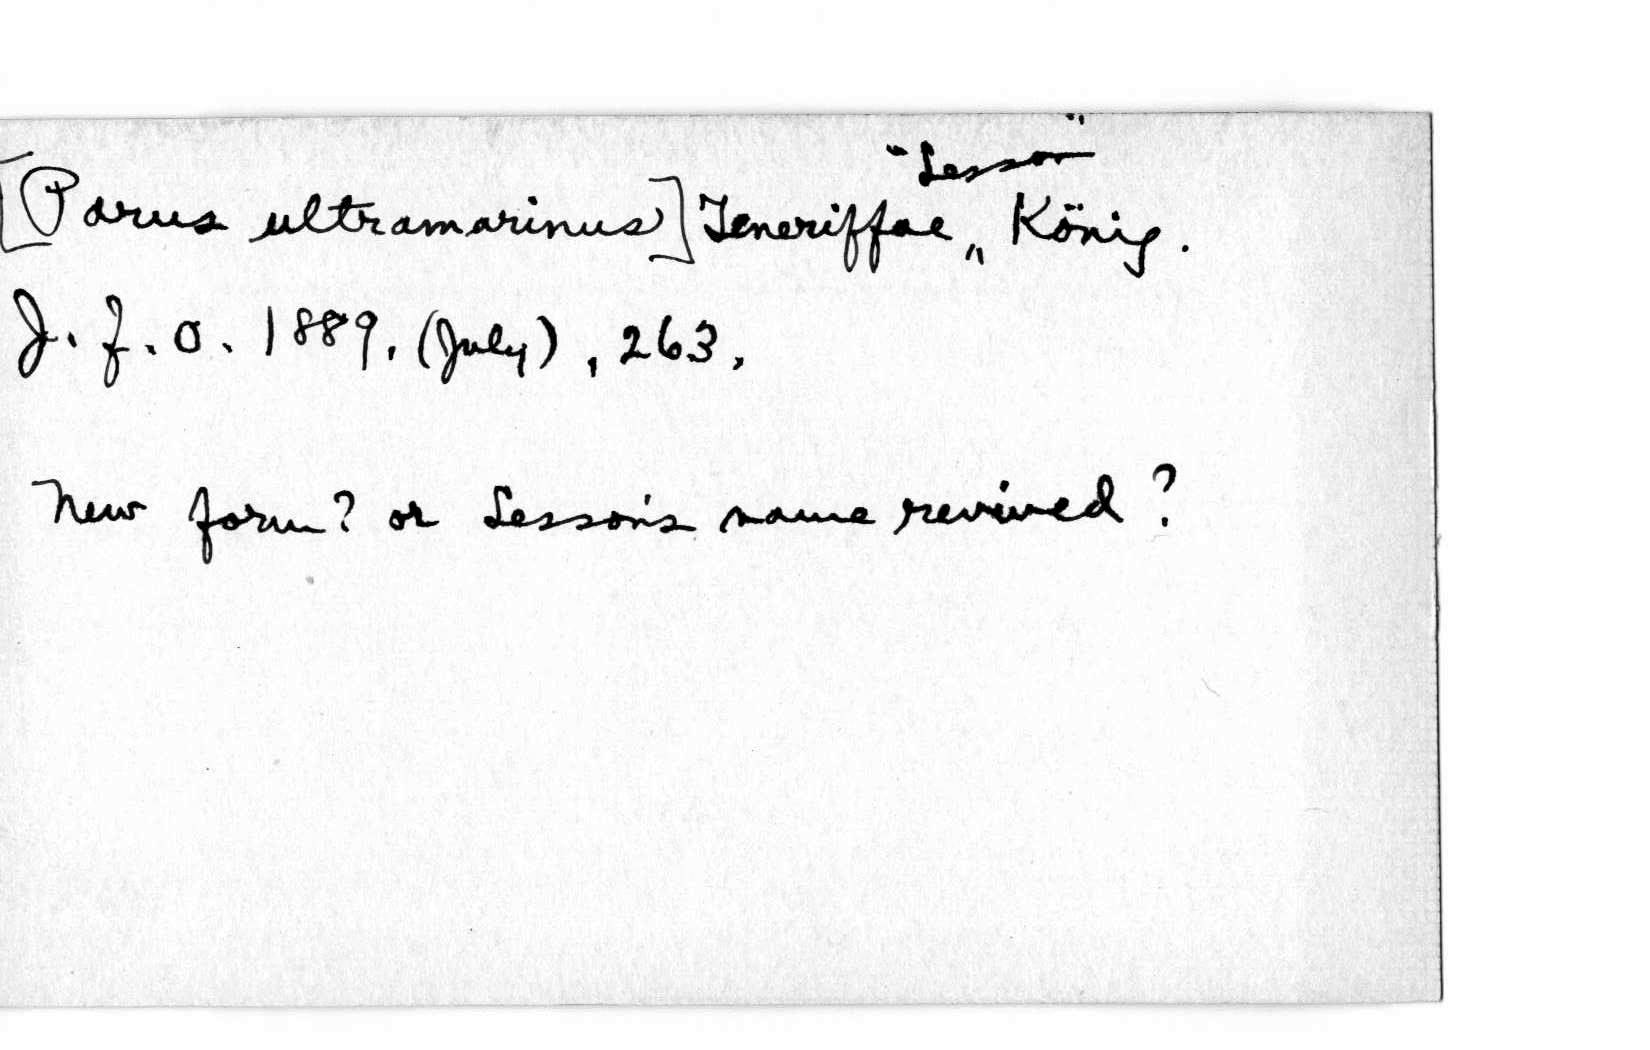 "Lesson"
[Parus ultramarinus] Teneriffae „ König.
J. f. O. 1889. (July), 263,
New form? or Lesson's name revived?